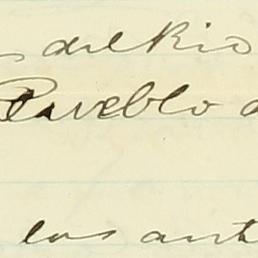 del Rio
Pueblo
los ant